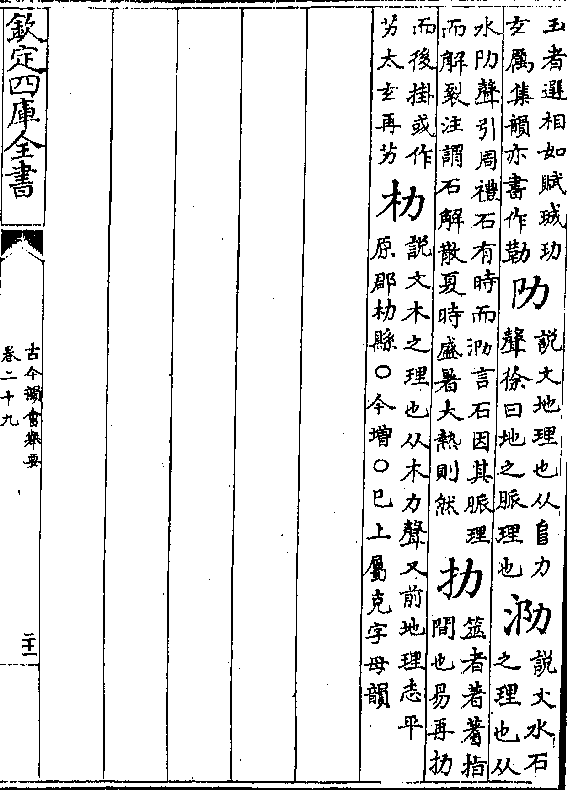 玉者選相如賦瑊玏
玄厲集韻亦書作勒
阞
説文地理也从𨸏力
聲徐曰地之脈理也
泐
説文水石
之理也从
水阞聲引周禮石有時而泐言石因其脈理
而解裂注謂石解散夏時盛暑大熱則然
扐
筮者著蓍指
間也易再扐
而後掛或作
艻太玄再艻
朸
説文木之理也从木力聲又前地理志平
原郡朸縣○今增○已上屬克字母韻
欽定四庫全書
古今韻會舉要
卷二十九